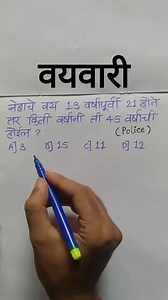 वयवारी
नेहाचे वय 13 वर्षापूर्वी 21 होते
तर किती वर्षांनी ती 45 वर्षाची
होईल ?
(Police)
A) 3 B) 15 C) 11 D) 12